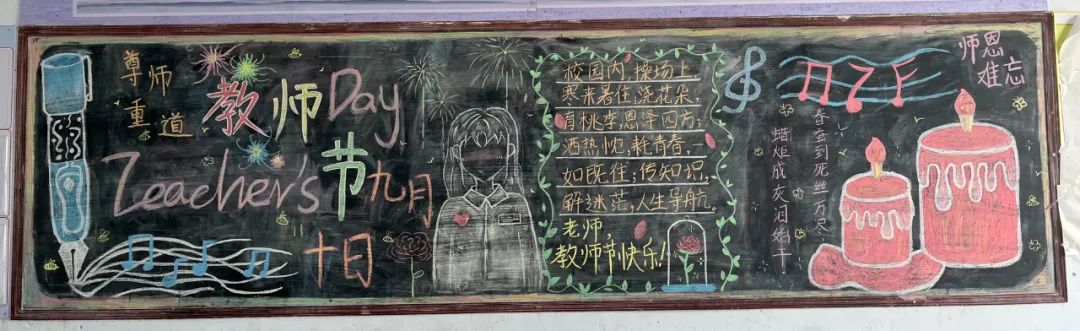 尊师
重道
教师Day
Teacher's节九月
十日
校园内,操场上
寒来暑往,浇花朵,
育桃李恩泽四方;
洒热忱,耗青春,一
如既往;传知识,
解迷茫,人生导航,
老师,
教师节快乐!
师恩
难忘
春蚕到死丝方尽
蜡炬成灰泪始干